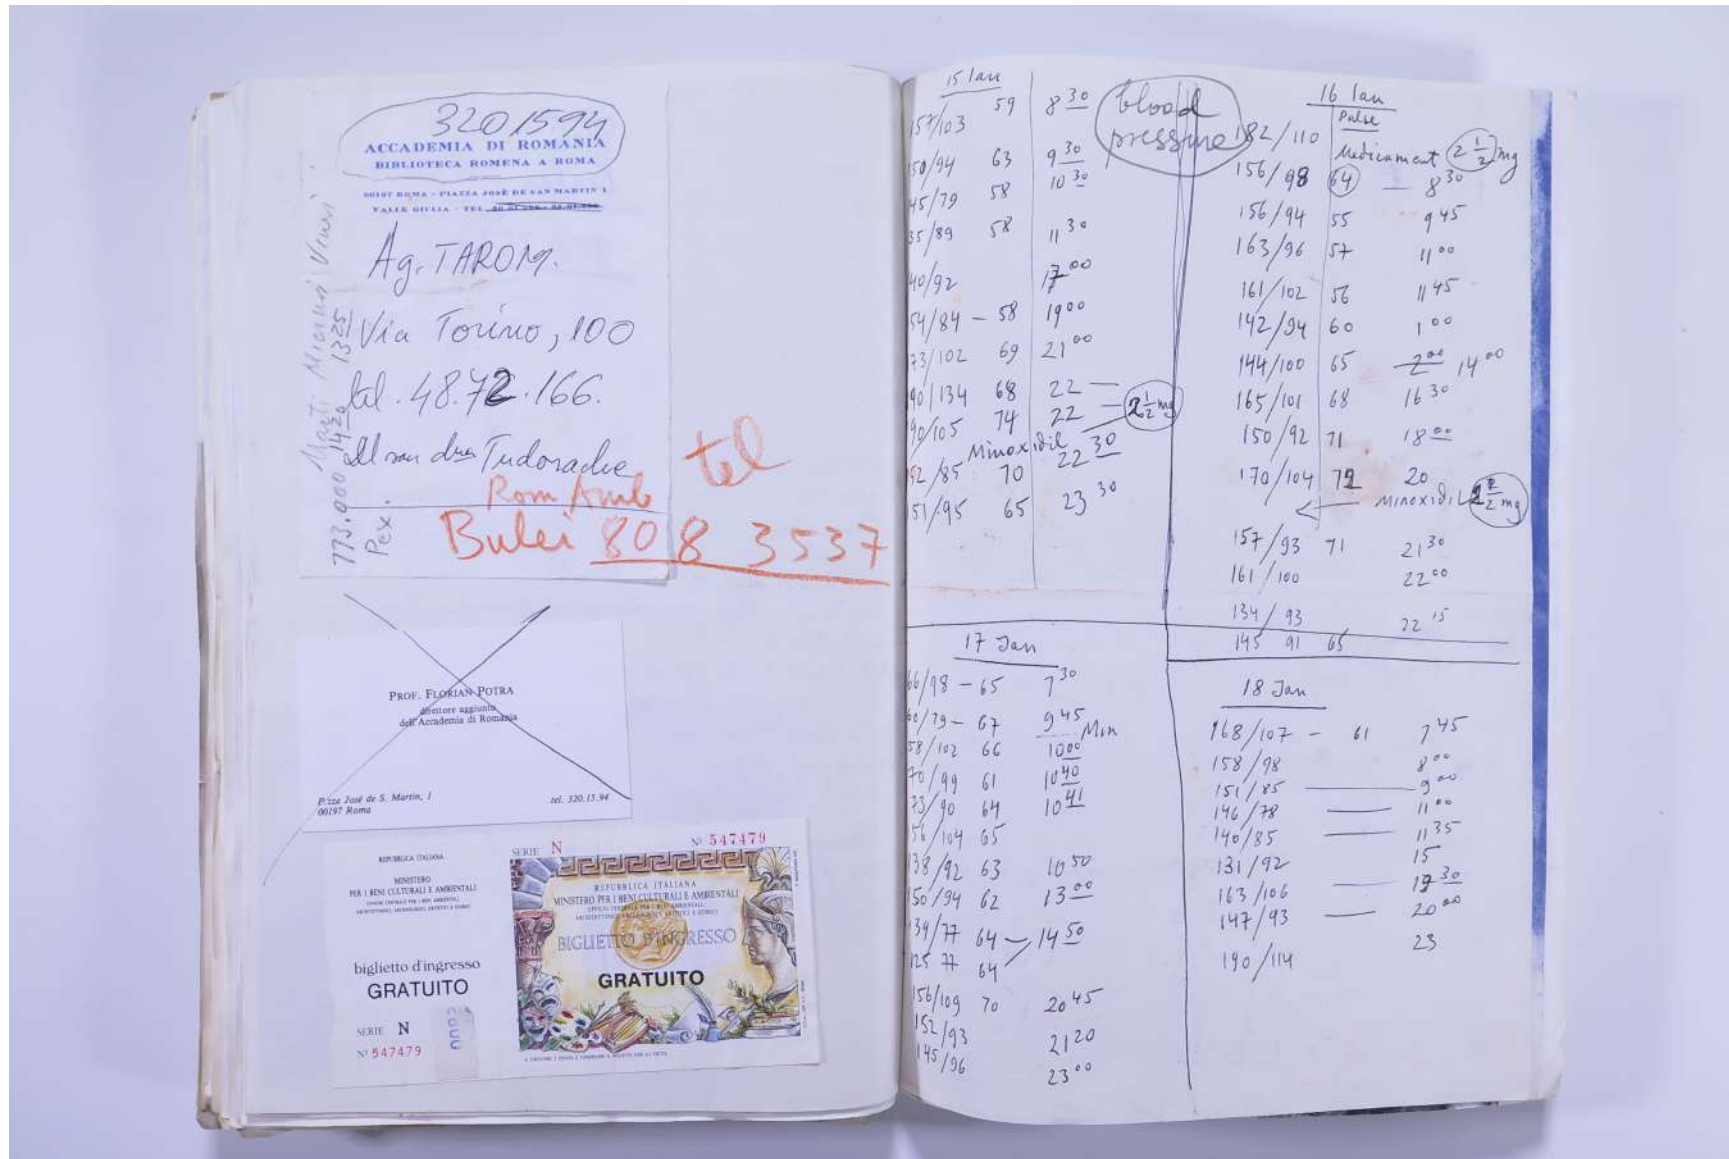 3201594
ACCADEMIA DI ROMANIA
BIBLIOTECA ROMENA A ROMA
00197 ROMA - PIAZZA JOSÈ DE SAN MARTIN 1
VALLE GIULIA - TEL.
Ag. TAROM.
Via Torino, 100
tel. 48.72.166.
Tudorache
tel
Rom Amb
Bulei 808 3537
Marți Miercuri Vineri
1420 1325
773.000
Pex.
PROF. FLORIAN POTRA
direttore aggiunto
dell'Accademia di Romania
P.zza José de S. Martin, 1
00197 Roma
tel. 320.15.94
REPUBBLICA ITALIANA
MINISTERO
PER I BENI CULTURALI E AMBIENTALI
biglietto d'ingresso
GRATUITO
SERIE N
Nº 547479
2000
SERIE N Nº 547479
REPUBBLICA ITALIANA
MINISTERO PER I BENI CULTURALI E AMBIENTALI
BIGLIETTO D'INGRESSO
GRATUITO
15 Ian
157/103 59 8 30
50/94 63 9 30
45/79 58 10 30
35/89 58 11 30
40/92 17 00
54/84 - 58 19 00
73/102 69 21 00
90/134 68 22 —
90/105 74 22 — 2 1/2 mg
Minoxidil
52/85 70 22 30
51/95 65 23 30
blood
pressure
16 Ian
Pulse
182/110
Medicament 2 1/2 mg
156/98 64 — 8 30
156/94 55 9 45
163/96 57 11 00
161/102 56 11 45
142/94 60 1 00
144/100 65 2 00 14 00
165/101 68 16 30
150/92 71 18 00
170/104 72 20
Minoxidil mg
157/93 71 21 30
161/100 22 00
134/93 22 15
145 91 65
17 Jan
66/98 - 65 7 30
60/79 - 67 9 45 Min
58/102 66 10 00
70/99 61 10 40
73/90 64 10 41
56/104 65
138/92 63 10 50
150/94 62 13 00
139/77 64 — 14 50
125 77 64
156/109 70 20 45
152/93 21 20
145/96 23 00
18 Jan
168/107 - 61 7 45
158/98 8 00
151/85 — 9 00
146/78 — 11 00
140/85 — 11 35
131/92 15
163/106 — 19 30
147/93 — 20 00
190/114 23